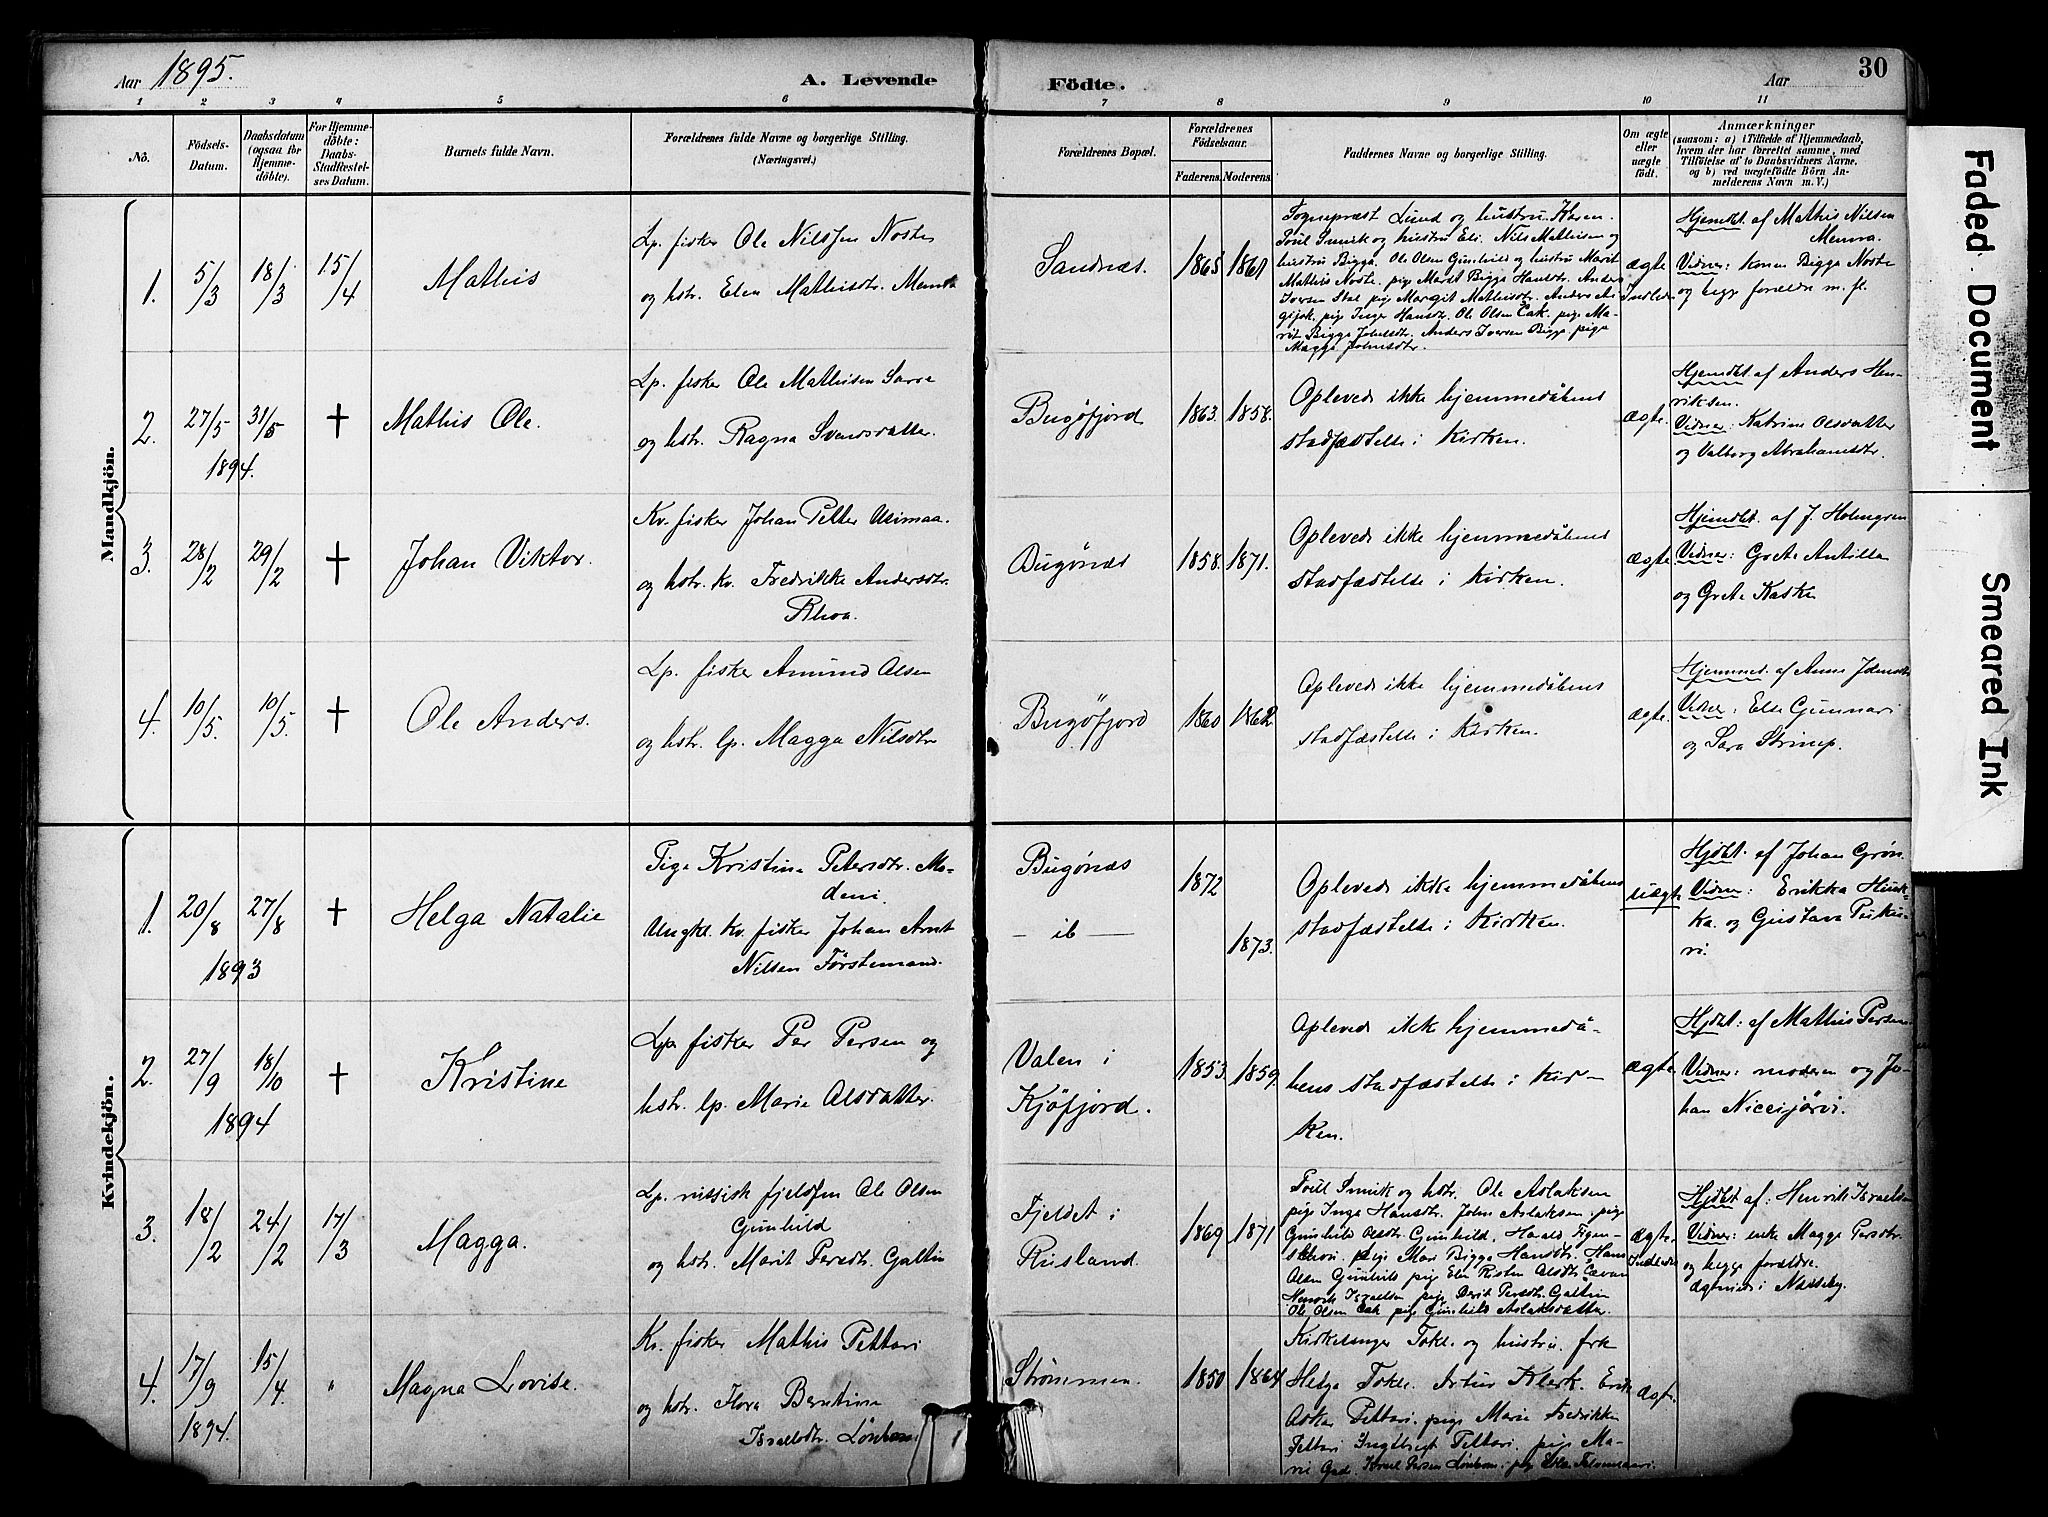 Aar 1895.
A. Levende
Födte.
Aar
30
1 2 3 4 5 6 7 8 9 10 11
No.
Födsels-
Datum.
Daabsdatum
(ogsaa for
Hjemme-
döbte).
For Hjemme-
döbte:
Daabs-
Stadfæstel-
ses Datum.
Barnets fulde Navn.
Forældrenes fulde Navne og borgerlige Stilling.
(Næringsvei.)
Forældrenes Bopæl.
Forældrenes
Födselsaar.
Faderens. Moderens.
Faddernes Navne og borgerlige Stilling.
Om ægte
eller
uægte
födt.
Anmærkninger
(saasom: a) i Tilfælde af Hjemmedaab,
hvem der har forrettet samme, med
Tilföielse af to Daabsvidners Navne,
og b) ved uægtefödte Börn An-
melderens Navn m. V.)
Mandkjön.
1. 5/3 18/3 15/4 Mathis
Lp. fisker Ole Nilssen Noste
og hstr. Elen Mathisdtr. Menna
Sandnæs. 1865 1861
Sognepræst Lund og hustru Karen.
hustru Bigga. Ole Olsen Gunhild og hustru Marit
Mathis Noste. pige Marit Bigga Hansdtr. Anders
pige Inger Hansdtr. Ole Olsen Cak. pige Ma-
rit Bigga Johnsdtr. Anders Iversen Bigga. pige
Magga Johnsdtr.
ægte
Hjemdbt. af Mathis Nilsen
Menna.
Vidner: Konen Bigga Noste
og begge forældre m. fl.
2. 27/5 31/5 † Mathis Ole.
1894.
Lp. fisker Ole Mathisen Sarre
og hstr. Ragna Svensdatter.
Bugöfjord 1863. 1858.
Opleved ikke hjemmedåbens
stadfæstelse i Kirken.
ægte.
Hjemdbt. af Anders Hen-
riksen.
Vidner: Katrine Olsdatter
og Valborg Abrahamsdtr.
3. 28/2 29/2 † Johan Viktor.
Kv. fisker Johan Petter Uimaa.
og hstr. kv. Fredrikke Andersdtr.
Rhoa.
Bugönæs 1858. 1871.
Opleved ikke hjemmedåbens
stadfæstelse i Kirken.
ægte
Hjemdbt. af J. Holmgren
Vidner: Grete Antilla
og Grete Kaske
4. 10/5. 10/5. † Ole Anders.
Lp. fisker Amund Olsen
og hstr. lp. Magga Nilsdtr
Bugöfjord 1860 1862
Opleved ikke hjemmedåbens
stadfæstelse i Kirken.
ægte.
Hjemmet. af Anne
Vidner: Else Gunnari
og Sara Strimp.
Kvindekjön.
1. 20/8 27/8 † Helga Natalie
1893
Pige Kristine Petersdtr. Ma-
deni.
Ungkl. kv. fisker Johan Arnt
Nilsen Förstemand.
Bugönæs 1872
- ib - 1873.
Opleved ikke hjemmedåbens
stadfæstelse i Kirken.
uægte
Hjdbt. af Johan Grön.
Vidner: Erikka Hiuk-
ka. og Gustava Peiku-
ri.
2. 27/9 18/10 † Kristine
1894
Lp. fisker Per Persen og
hstr. lp. Marie Olsdatter.
Valen i
Kjöfjord. 1853. 1859.
Opleved ikk hjemmedå-
bens stadfæstelse i Kir-
ken.
ægte
Hjdbt: af Mathis Persen
Vidner: moderen og Jo-
han Niceijärvi.
3. 18/2 24/2 17/3 Magga.
Lp. russisk fjeldfin Ole Olsen
Gunhild
og hstr. Marit Persdtr. Galtin
Fjeldet i
Rusland. 1869 1871
og hstr. Ole Aslaksen
pige Inga Hansdtr. John Aslaksen. pige
Gunhild Olsdtr. Gunhild. Harald Figen-
schou. pige Mari Bigga Hansdtr. Hans
Olsen Gunhild pige Elen Risten Olsdtr. Cævan
Henrik Israelsen pige Berit Persdtr. Galtin
Ole Olsen Cak pige Gunhild Aslaksdatter.
ægte.
Hjdbt af: Henrik Israelsen
Vidner: enke Magga Persdtr.
og begge forældre.
i Næsseby.
4. 17/9 15/4 " Magna Lovise.
1894.
Kv. fisker Mathis Pettari
og hstr. Flora Berntine
Israelsdtr. Lönbom.
Strömmen. 1850 1864
Kirkesanger Tokle. og hustru. frk
Helga Tokle. Artur Klerk. Erik
Oskar Pettari. pige Marie Fredrikke
Pettari Ingebrigt Pettari. pige Ma-
rie Gade. Israel Persen Lönbom.
ægte.
Faded Document
Smeared Ink